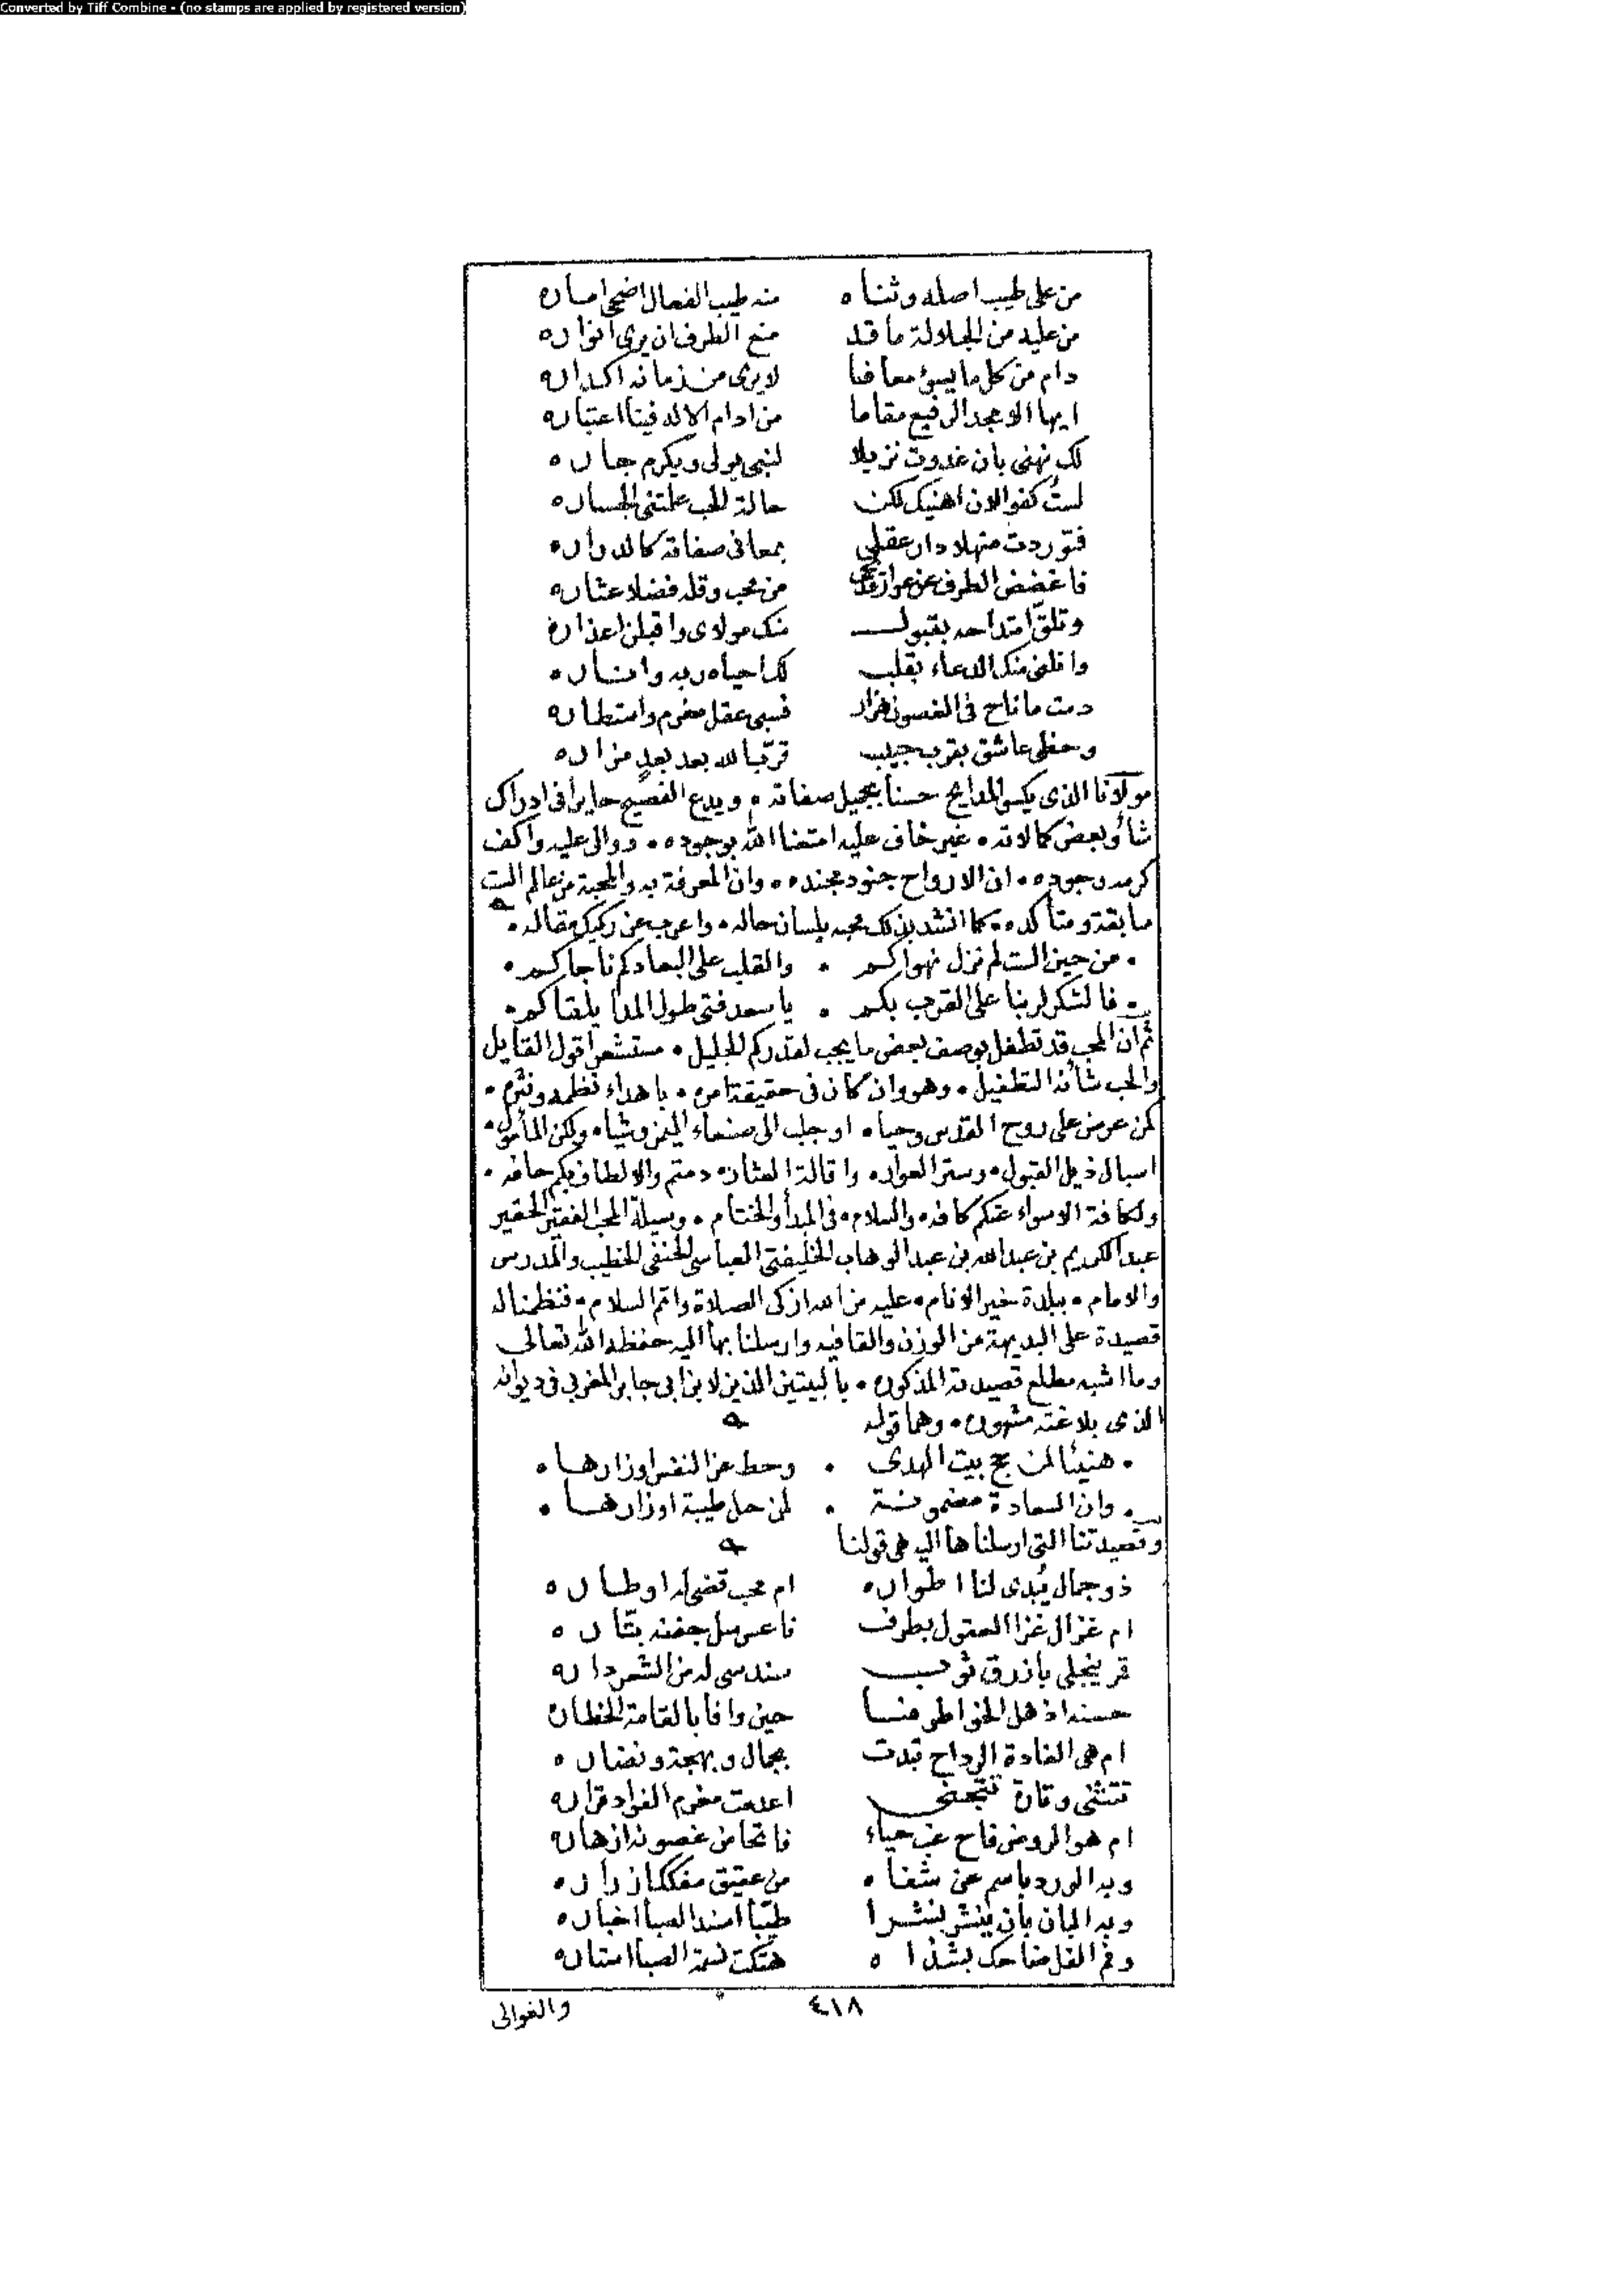 Converted by Tiff Combine - (no stamps are applied by registered version)
من على طيب اصله وثناه منه طيب الفعال اضحى اماره
من عليه من الجلالة ما قد منع الطرف ان يرى انواره
دام من كل ما يسئ معافا لا يرى من زمانه اكداره
ايها الامجد الرفيع مقاما من ادام الاله فينا اعتباره
لك نهنى بان غدوت نزيلا لنبى يولى ويكرم جاره
لست كفوا لان اهنيك لكن حالة الحب علمتنى الجساره
فتوردت منهلا دار عقلى بمعانى صفاته كالدواره
فاغضض الطرف عن عوار من محب وقله فضلا عثاره
وتلقّ امتداحه بقبول منك مولاى واقبلن اعذاره
وانلنى منك الدعاء بقلب لك احياه ربه واناره
دمت ما ناح فى الغصون هزار فسبى عقل مغرم واستطاره
وحظى عاشق بقرب حبيب قرّب الله بعد بعد مزاره
مولانا الذى يكسى المدايح حسنا بجميل صفاته ويدع الفصيح حايرا فى ادراك
شأو بعض كمالاته غير خاف عليه امتعنا الله بوجوده ووالى عليه واكف
كرمه وجوده ان الارواح جنود مجنده وان المعرفة به والمحبة من عالم الست
سابقة ومتأكده كما انشد بذلك محبه بلسان حاله واعرب عن ركيك مقاله
من حين الست لم نزل نهواكم والقلب على البعاد كم ناجاكم
فالشكر لربنا على القرب بكم يا سعد فتى طول المدا يلقاكم
ثم ان المحب قد تطفل بوصف بعض ما يجب لقدركم الجليل مستشعرا قول القايل
والحب شأنه التطفيل وهو وان كان فى حقيقة امره باهداء نظمه ونثره
كمن عرض على روح القدس وحيا او جلب الى صنعاء اليمن وشيا ولكن المأمول
اسبال ذيل القبول وستر العوار واقالة العثار دمتم والالطاف بكم حافه
ولكافة الاسواء عنكم كافه والسلام فى المبدأ والختام وسيلة المحب الفقير الحقير
عبد الكريم بن عبد الله بن عبد الوهاب الخليفتى العباسى الحنفى الخطيب والمدرس
والامام ببلدة خير الانام عليه من الله ازكى الصلاة واتم السلام فنظمنا له
قصيدة على البديهة من الوزن والقافيه وارسلنا بها اليه حفظه الله تعالى
وما اشبه مطلع قصيدته المذكوره بالبيتين الذين لابن ابى جابر المغربى فى ديوانه
الذى بلاغته مشهوره وهما قوله
هنيئا لمن حج بيت الهدى وحط عن النفس اوزارها
وان السعادة مضمونة لمن حل طيبة او زارها
وقصيدتنا التى ارسلناها اليه هى قولنا
ذو جمال يُبدى لنا اطواره ام محب قضى له اوطاره
ام غزال غزا العقول بطرف ناعس سل جفنه بتّاره
قمر ينجلى بازرق ثوب سندسى له من الشعر داره
حسنه اذهل الخواطر منا حين وافا بالقامة الخطاره
ام هى الغادة الرداح تبدت بجمال وبهجة ونضاره
تتثنى وتارة تتجنى اعدمت مغرم الفؤاد قراره
ام هو الروض فاح غب حياء فاتحا من غصونه ازهاره
وبدا الورد باسم عن شفاه من عقيق مفككا ازراره
وبدا البان بان ينشر نشرا طيّبا اسند الصبا اخباره
وفم الفل ضاحك بشذاه هتكت نسمة الصبا استاره
٤١٨
والغوالى